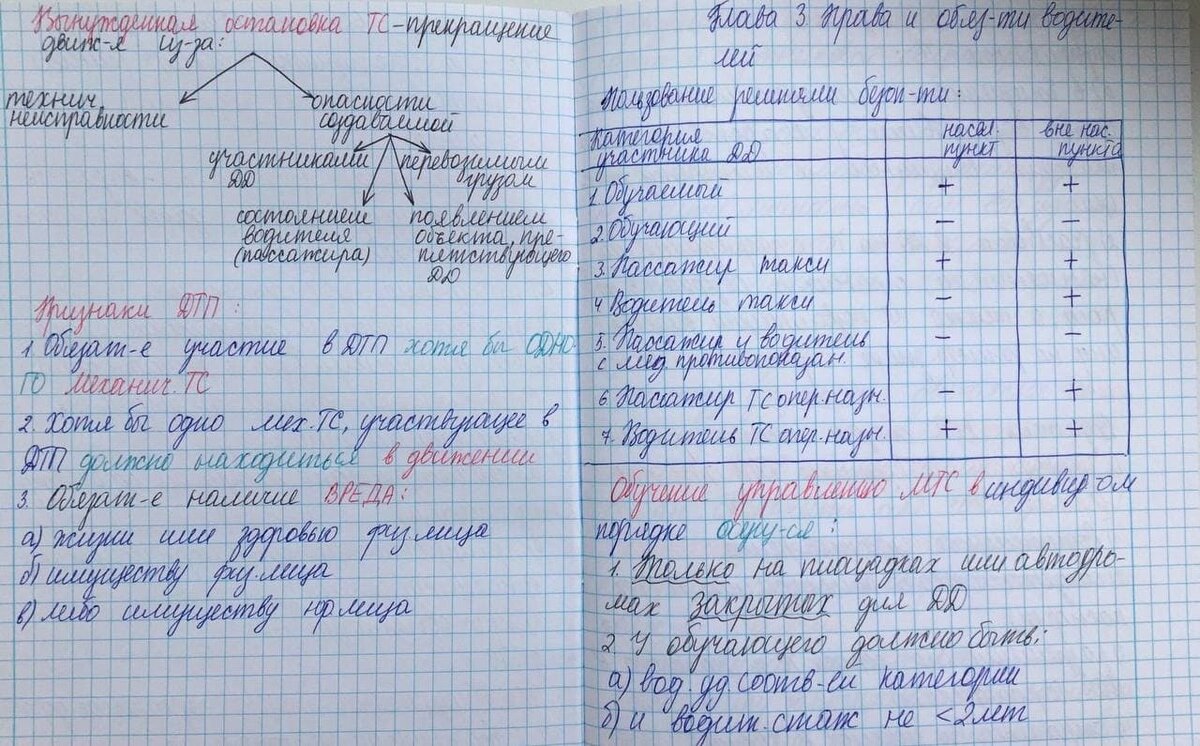 Вынужденная остановка ТС-прекращение
движ-я из-за:
технич.
неисправности
опасности
создаваемой
участниками
ДД
перевозимым
грузом
состоянием
водителя
(пассажира)
появлением
объекта, пре-
пятствующего
ДД
Признаки ДТП:
1 Обязат-е участие в ДТП хотя бы ОДНО-
ГО механич. ТС
2. Хотя бы одно мех. ТС, участвующее в
ДТП должно находиться в движении
3. Обязат-е наличие ВРЕДА:
а) жизни или здоровью физ.лица
б) имуществу физ.лица
в) либо имуществу юр.лица
Глава 3 Права и обяз-ти водите-
лей
Пользование ремнями безоп-ти:
Категория участника ДД | насел. пункт | вне нас. пункта
1. Обучаемый + +
2. Обучающий − −
3. Пассажир такси + +
4 Водитель такси − +
5. Пассажир и водитель − −
с мед. противопоказан.
6. Пассажир ТС опер.назн. − +
7. Водитель ТС опер.назн. + +
Обучение управлению МТС в индивид-ом
порядке осущ-ся:
1. Только на площадках или автодро-
мах закрытых для ДД
2. У обучающего должно быть:
а) вод. уд. соотв-ей категории
б) и водит. стаж не < 2 лет